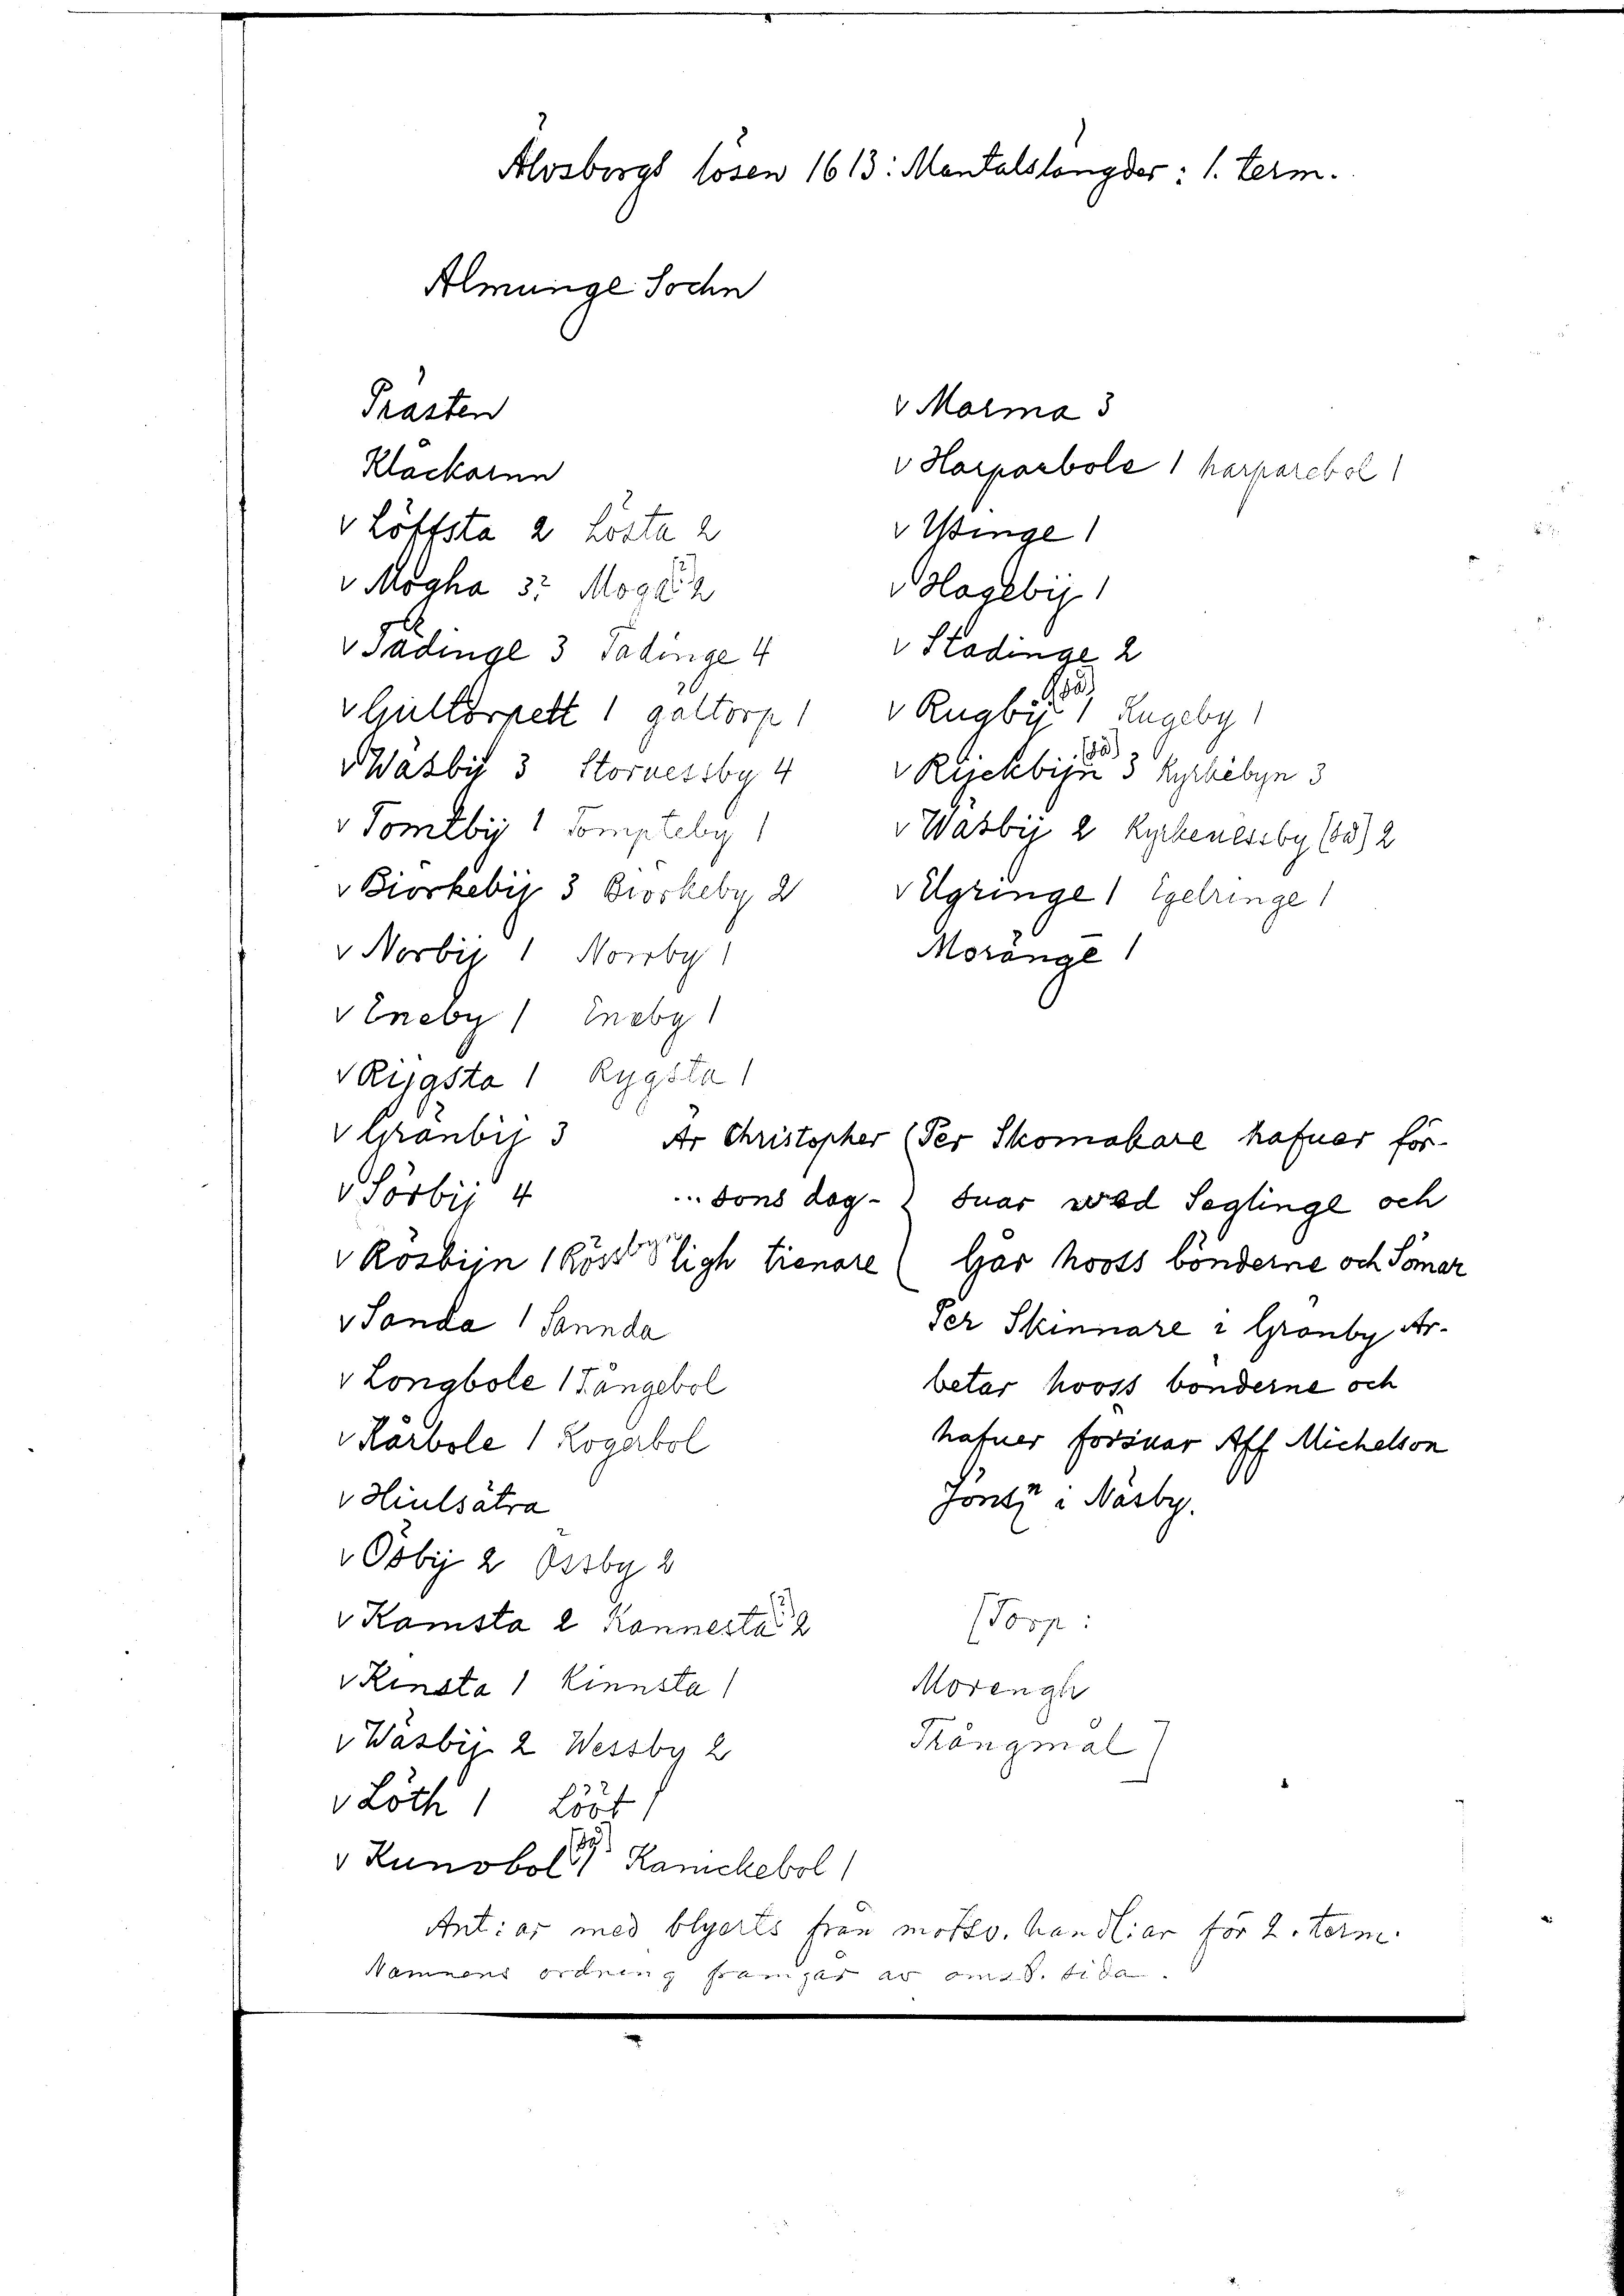 Älvsborgs lösen 1613: Mantalslängder: 1. term.
Almunge Sochn
Prästen
Klåckaren
v Löffsta 2 Lösta 2
v Mogha 3 Moga 2
v Tädinge 3 Tadinge 4
v Gultorpett 1 galtorp 1
v Wäsbij 3 Stornessby 4
v Tomtbij 1 Tompteby 1
v Biorkebij 3 Biorkeby 2
v Norbij 1 Norrby 1
v Eneby 1 Eneby 1
v Rijgsta 1 Rygsta 1
v Gränbij 3
v Sörbij 4
v Rösbijn 1 Röss
v Sanda 1 Sannda
v Longbole 1 Långebol
v Kårbole 1 Kogerbol
v Hiulsätra
v Ösbij 2 Össby 2
v Kamsta 2 Kannesta 2
v Kinsta 1 Kinnsta 1
v Wäsbij 2 Wessby 2
v Löth 1 Lööt 1
v Kunobol 1 Kanickebol 1
v Marma 3
v Harparbole 1 harparebol 1
v Utinge 1
v Hagebij 1
v Stadinge 2
v Rugbij 1 Rugeby 1
v Rijckbijn 3 Kyrkebyn 3
v Wäsbij 2 Kyrkenessby 2
v Elgringe 1 Egelringe 1
Moränge 1
Ar Christopher
... sons dag-
ligh tienare
(Per Skomakare hafuer för-
suar wed Seglinge och
Går hooss bönderne och Sömar
Per Skinnare i Gränby Ar-
betar hooss bönderne och
hafuer försuar Aff Michelson
Jöns i Näsby.
[Torp:
Morengh
Trångmål]
Ant: ar med blyerts från motsv. handliar för 2. term.
Namnens ordning framgår av oms. sida.